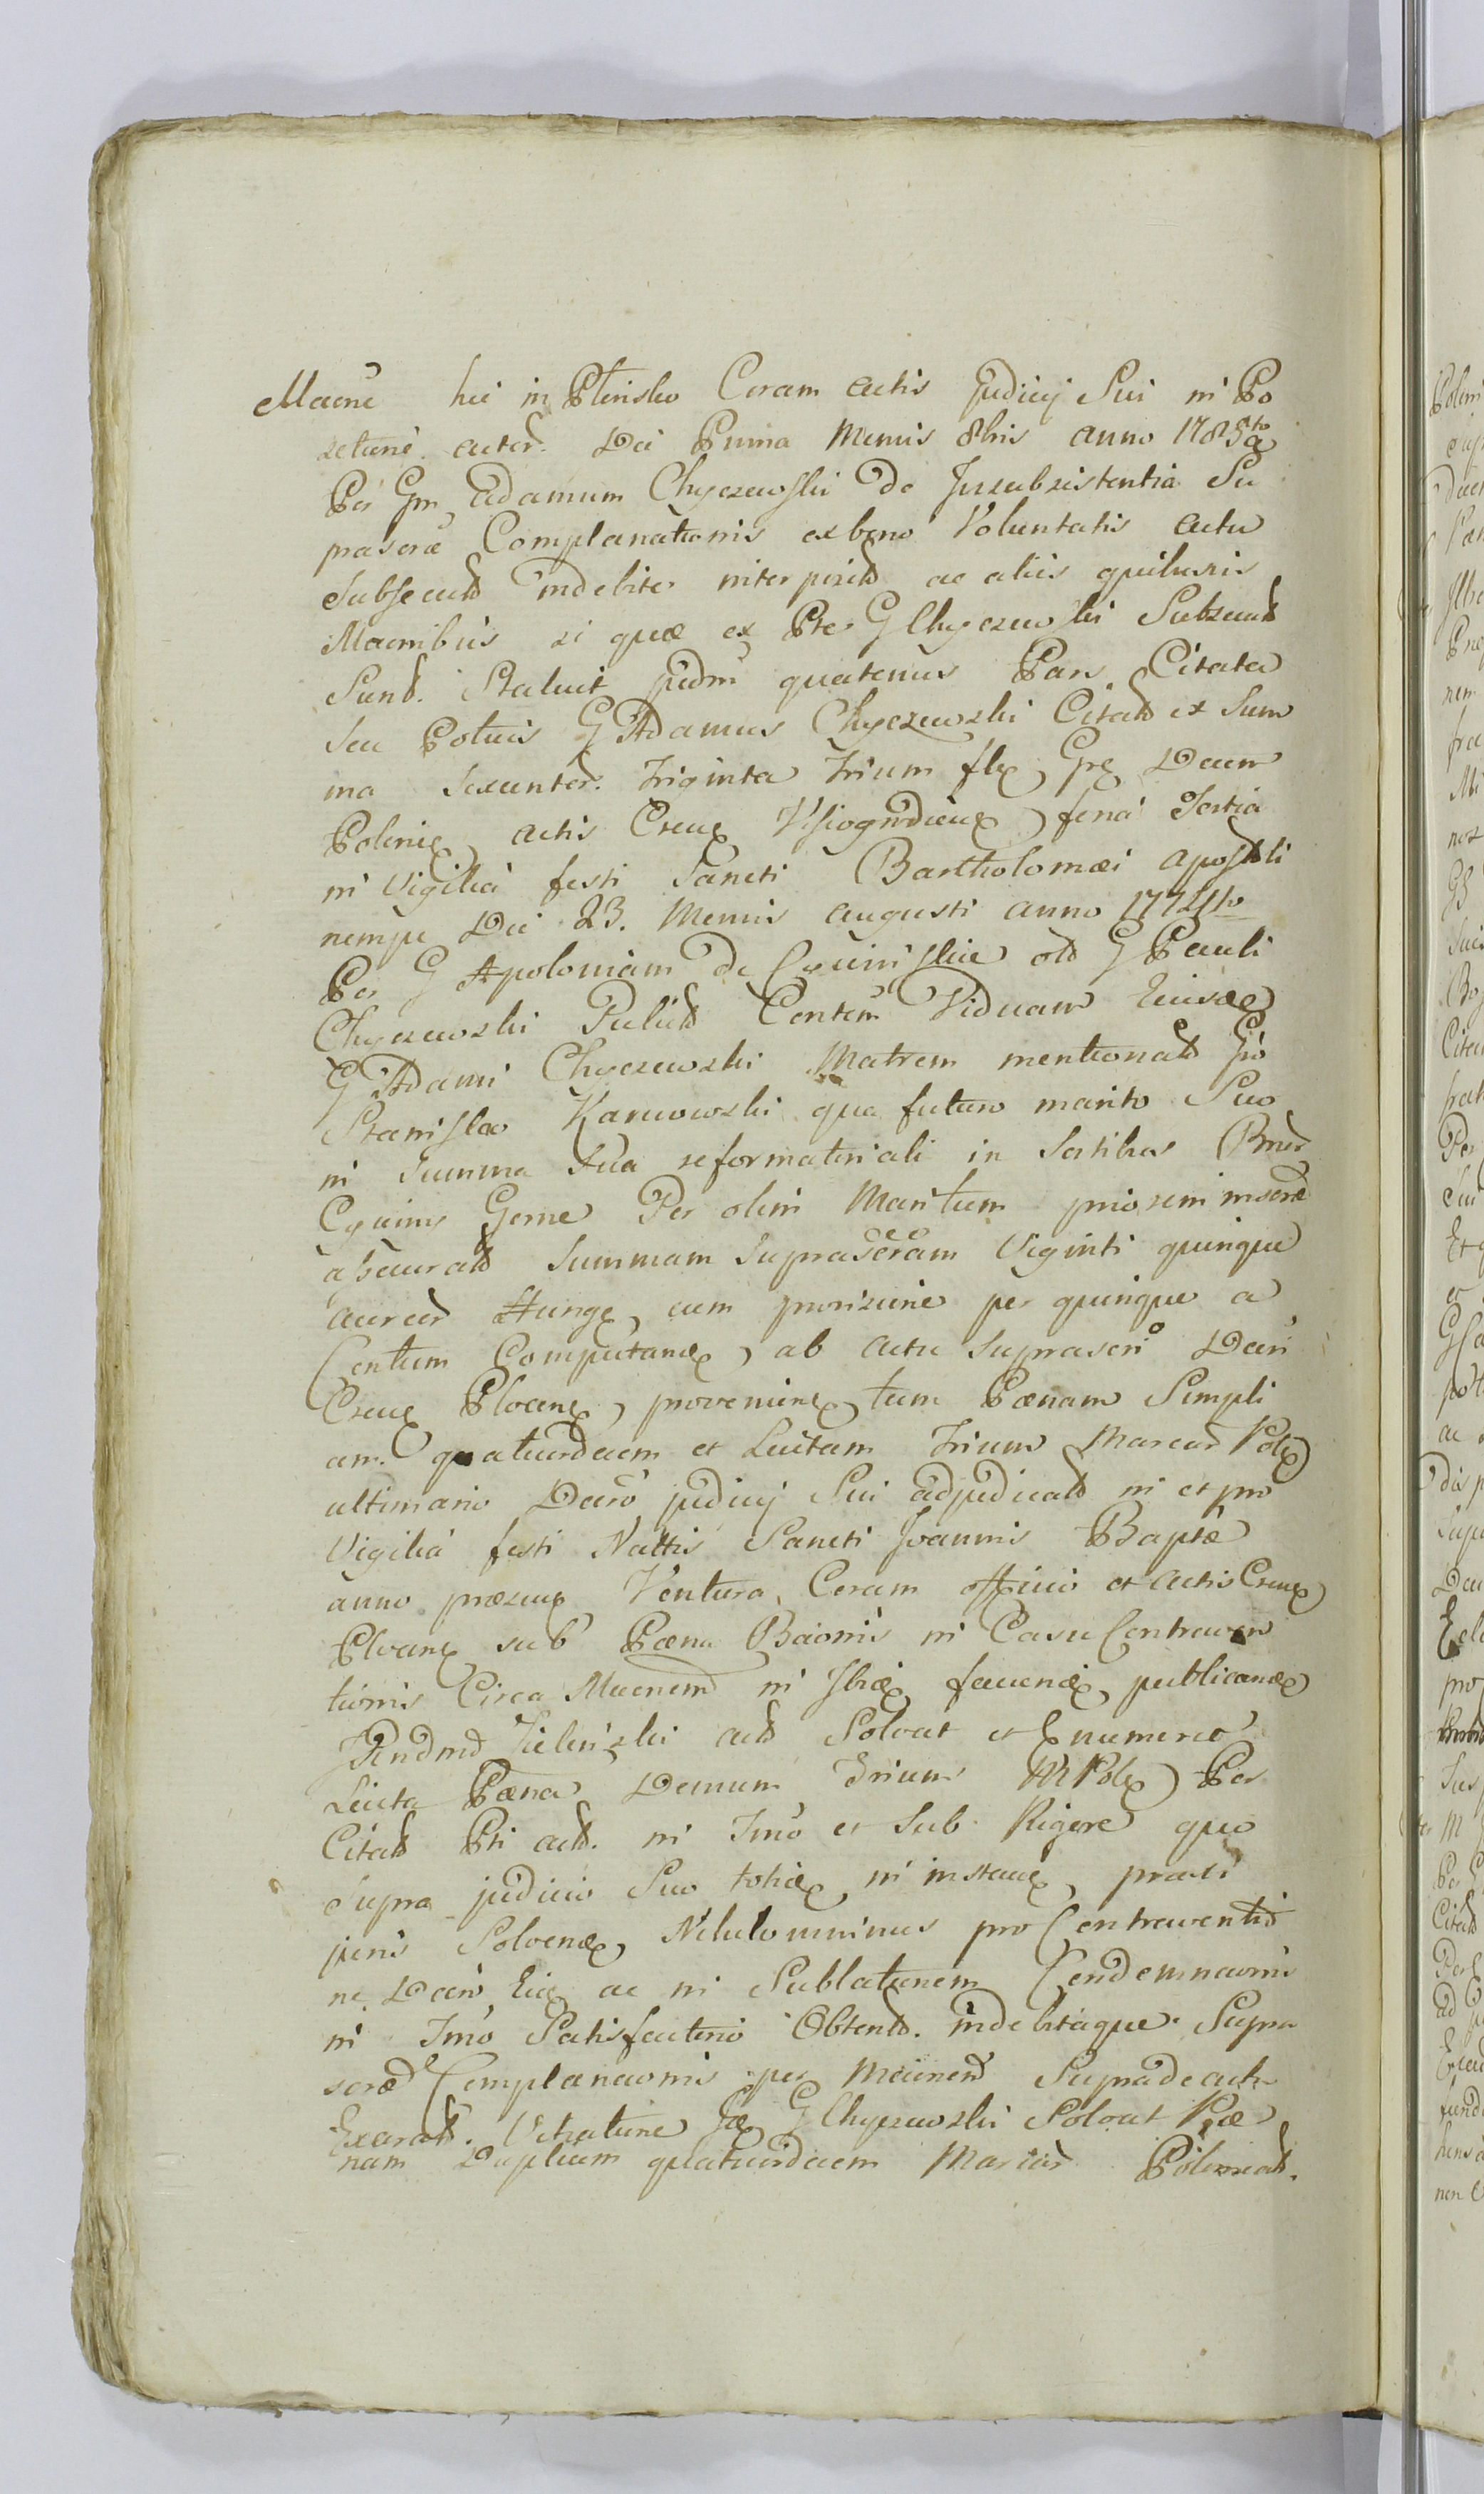 Macne hic in Plensko Coram actis Judicij Sui in Po
zetune acter. Die Prima Mensis 8bris anno 1785to a
Per Gm Adamum Chyczewski De Insubsistentia Su
prascrae Complanationis ex bono Voluntatis actu
Subsecutt indebite interposit ac aliis quibusvis
Macnibus si quae ex Pte G Chyczewski Subsecut
Sunt. Statuit judm quatenus Pars Citata
Seu Potius G Adamus Chyczewski Citat ex Sum
ma Sexcenter. Triginta Trium fl Gr Decem
Polonic actis Creu Visiogrodieu feria Tertia
in Vigilia festi Sancti Bartholomaei apostoli
nempe Die 23. Mensis augusti anno 1774to
Per G Apoloniam De olt G Pauli
Chyczewski Relict Viduam Eiusd
G Adami Chyczewski Matrem mentionat Gso
Stanislao Karwowski qua futuro marito Suo
in Summa Sua reformatoriali in Sortibus Bnor
Cywiny Gorne Per olim Maritum priorem inscrae
assecurat Summam Suprascram Viginti quinque
aureor Hung, cum provisione per quinque a
Centum Computand, ab actu Suprascri Decri
Creu Plocen, provenien, tum Paenam Simpli
am quatuordecem et Luitam Trium Marcar Pol
ultimario Decro judicij Sui adjudicat in et pro
Vigilia festi Nattis Sancti Joannis Baptae
anno praesen Venturo, Coram officio et actis Creu
Plocen sub Paena Baonis in Casu Contraven
tionis Circa Macnem in Ibid faciend, publicand
Rndmd Zielinski act Solvat et Enumeret
Luita Paena Demum Trium M Pol Per
Citat Pti act. in Imo et Sub Rigore quo
Supra judicio Suo totid in instanc, parti
juris Solvend, Nihilominus pro Contraventio
ne Decri Eid ac in Sublationem Condemnaonis
in Imo Satisfactino Obtent. indebitaque Supra
scrae Complanaonis per Macnem Supra de actu
Exarat. Vexatione Id G Chyczewski Solvat Pae
nam Duplicem quatuordecem Marcar Polonicat.